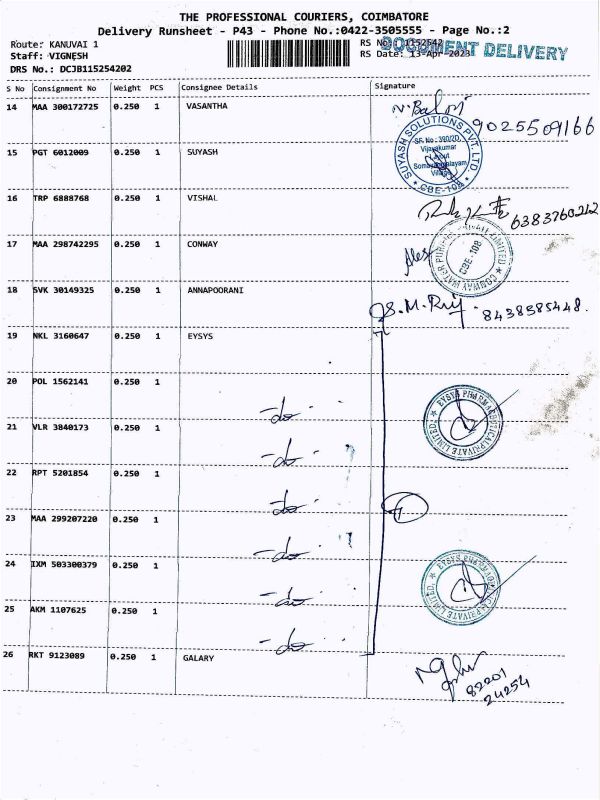 THE PROFESSIONAL COURIERS, COIMBATORE
Delivery Runsheet - P43 - Phone No.:0422-3505555 - Page No.:2
Route: KANUVAI 1
Staff: VIGNESH
DRS No.: DCJB115254202
RS No.: 1152542
RS Date: 13-Apr-2023
DOCUMENT DELIVERY
S No Consignment No Weight PCS Consignee Details Signature
14 MAA 300172725 0.250 1 VASANTHA
9025509166
15 PGT 6012009 0.250 1 SUYASH
SUYASH SOLUTIONS PVT. LTD.
SF. No : 390/2D,
Vijayakumar
Layout
Somayampalayam
Village
CBE-108
16 TRP 6888768 0.250 1 VISHAL
6383760212
17 MAA 298742295 0.250 1 CONWAY
Alex
CBE-108
18 SVK 30149325 0.250 1 ANNAPOORANI
8438585448.
19 NKL 3160647 0.250 1 EYSYS
20 POL 1562141 0.250 1
-do-
EYSYS PHARMACEUTICAL PRIVATE LIMITED
21 VLR 3840173 0.250 1
-do-
22 RPT 5201854 0.250 1
-do-
23 MAA 299207220 0.250 1
-do-
24 IXM 503300379 0.250 1
-do-
EYSYS PHARMACEUTICAL PRIVATE LIMITED
25 AKM 1107625 0.250 1
-do-
26 RKT 9123089 0.250 1 GALARY
82201
24254